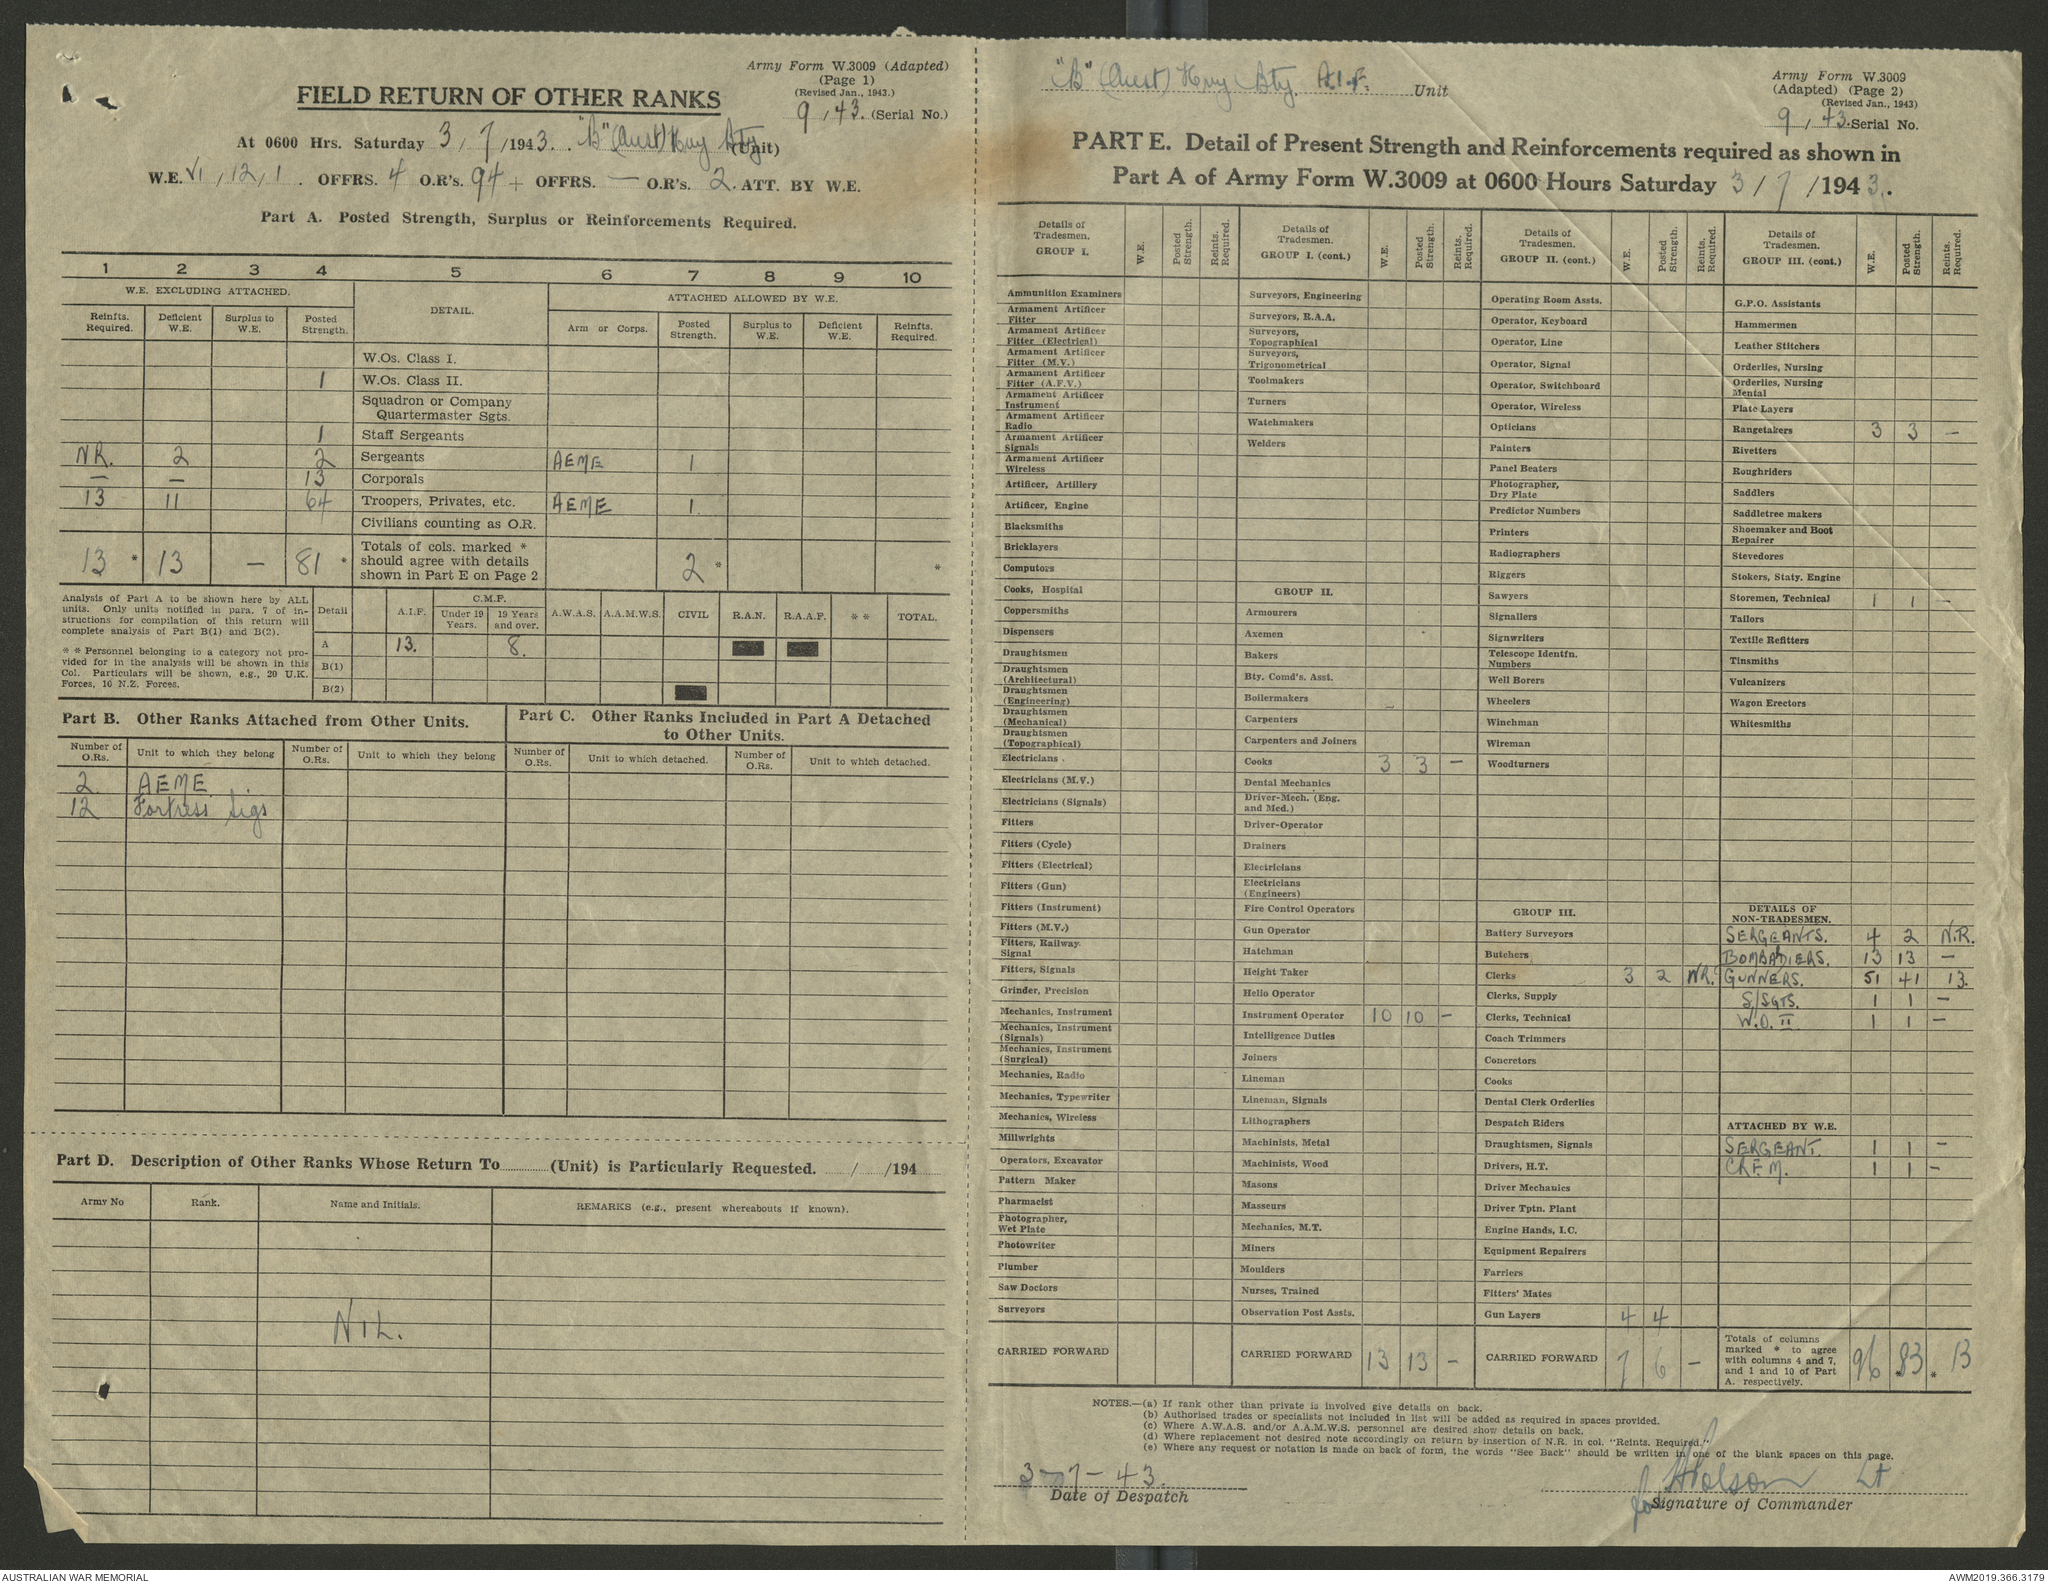 Army Form W.3009 (Adapted)
(Page 1)
(Revised Jan., 1943.)
FIELD RETURN OF OTHER RANKS
9 , 43. (Serial No.)
At 0600 Hrs. Saturday 3 / 7 /1943. "B" (Aust) Hvy Bty (Unit)
W.E. VI , 12 , 1 . OFFRS. 4 O.R's. 94 + OFFRS. — O.R's. 2. ATT. BY W.E.
Part A. Posted Strength, Surplus or Reinforcements Required.
1 2 3 4 5 6 7 8 9 10
W.E. EXCLUDING ATTACHED. DETAIL. ATTACHED ALLOWED BY W.E.
Reinfts. Required. Deficient W.E. Surplus to W.E. Posted Strength. Arm or Corps. Posted Strength. Surplus to W.E. Deficient W.E. Reinfts. Required.
W.Os. Class I.
1 W.Os. Class II.
Squadron or Company Quartermaster Sgts.
1 Staff Sergeants
N.R. 2 2 Sergeants AEME 1
— — 13 Corporals
13 11 64 Troopers, Privates, etc. AEME 1
Civilians counting as O.R.
13 * 13 — 81 * Totals of cols. marked * should agree with details shown in Part E on Page 2 2 * *
Analysis of Part A to be shown here by ALL
units. Only units notified in para. 7 of in-
structions for compilation of this return will
complete analysis of Part B(1) and B(2).
* * Personnel belonging to a category not pro-
vided for in the analysis will be shown in this
Col. Particulars will be shown, e.g., 20 U.K.
Forces, 16 N.Z. Forces.
Detail A.I.F. C.M.F. Under 19 Years. 19 Years and over. A.W.A.S. A.A.M.W.S. CIVIL R.A.N. R.A.A.F. * * TOTAL.
A 13. 8.
B(1)
B(2)
Part B. Other Ranks Attached from Other Units.
Number of O.Rs. Unit to which they belong Number of O.Rs. Unit to which they belong
2. AEME.
12 Fortress Sigs
Part C. Other Ranks Included in Part A Detached
to Other Units.
Number of O.Rs. Unit to which detached. Number of O.Rs. Unit to which detached.
Part D. Description of Other Ranks Whose Return To (Unit) is Particularly Requested. / /194
Army No Rank. Name and Initials. REMARKS (e.g., present whereabouts if known).
NIL.
"B" (Aust) Hvy Bty A.I.F. Unit
Army Form W.3009
(Adapted) (Page 2)
(Revised Jan., 1943)
9 , 43. Serial No.
PART E. Detail of Present Strength and Reinforcements required as shown in
Part A of Army Form W.3009 at 0600 Hours Saturday 3 / 7 /1943.
Details of Tradesmen. GROUP I. W.E. Posted Strength. Reints. Required.
Ammunition Examiners
Armament Artificer Fitter
Armament Artificer Fitter (Electrical)
Armament Artificer Fitter (M.V.)
Armament Artificer Fitter (A.F.V.)
Armament Artificer Instrument
Armament Artificer Radio
Armament Artificer Signals
Armament Artificer Wireless
Artificer, Artillery
Artificer, Engine
Blacksmiths
Bricklayers
Computors
Cooks, Hospital
Coppersmiths
Dispensers
Draughtsmen
Draughtsmen (Architectural)
Draughtsmen (Engineering)
Draughtsmen (Mechanical)
Draughtsmen (Topographical)
Electricians
Electricians (M.V.)
Electricians (Signals)
Fitters
Fitters (Cycle)
Fitters (Electrical)
Fitters (Gun)
Fitters (Instrument)
Fitters (M.V.)
Fitters, Railway Signal
Fitters, Signals
Grinder, Precision
Mechanics, Instrument
Mechanics, Instrument (Signals)
Mechanics, Instrument (Surgical)
Mechanics, Radio
Mechanics, Typewriter
Mechanics, Wireless
Millwrights
Operators, Excavator
Pattern Maker
Pharmacist
Photographer, Wet Plate
Photowriter
Plumber
Saw Doctors
Surveyors
CARRIED FORWARD
Details of Tradesmen. GROUP I. (cont.) W.E. Posted Strength. Reints. Required.
Surveyors, Engineering
Surveyors, R.A.A.
Surveyors, Topographical
Surveyors, Trigonometrical
Toolmakers
Turners
Watchmakers
Welders
GROUP II.
Armourers
Axemen
Bakers
Bty. Comd's. Asst.
Boilermakers
Carpenters
Carpenters and Joiners
Cooks 3 3 —
Dental Mechanics
Driver-Mech. (Eng. and Med.)
Driver-Operator
Drainers
Electricians
Electricians (Engineers)
Fire Control Operators
Gun Operator
Hatchman
Height Taker
Helio Operator
Instrument Operator 10 10 —
Intelligence Duties
Joiners
Lineman
Lineman, Signals
Lithographers
Machinists, Metal
Machinists, Wood
Masons
Masseurs
Mechanics, M.T.
Miners
Moulders
Nurses, Trained
Observation Post Assts.
CARRIED FORWARD 13 13 —
Details of Tradesmen. GROUP II. (cont.) W.E. Posted Strength. Reints. Required.
Operating Room Assts.
Operator, Keyboard
Operator, Line
Operator, Signal
Operator, Switchboard
Operator, Wireless
Opticians
Painters
Panel Beaters
Photographer, Dry Plate
Predictor Numbers
Printers
Radiographers
Riggers
Sawyers
Signallers
Signwriters
Telescope Identfn. Numbers
Well Borers
Wheelers
Winchman
Wireman
Woodturners
GROUP III.
Battery Surveyors
Butchers
Clerks 3 2 NR.
Clerks, Supply
Clerks, Technical
Coach Trimmers
Concretors
Cooks
Dental Clerk Orderlies
Despatch Riders
Draughtsmen, Signals
Drivers, H.T.
Driver Mechanics
Driver Tptn. Plant
Engine Hands, I.C.
Equipment Repairers
Farriers
Fitters' Mates
Gun Layers 4 4
CARRIED FORWARD 7 6 —
Details of Tradesmen. GROUP III. (cont.) W.E. Posted Strength. Reints. Required.
G.P.O. Assistants
Hammermen
Leather Stitchers
Orderlies, Nursing
Orderlies, Nursing Mental
Plate Layers
Rangetakers 3 3 —
Rivetters
Roughriders
Saddlers
Saddletree makers
Shoemaker and Boot Repairer
Stevedores
Stokers, Staty. Engine
Storemen, Technical 1 1 —
Tailors
Textile Refitters
Tinsmiths
Vulcanizers
Wagon Erectors
Whitesmiths
DETAILS OF NON-TRADESMEN.
SERGEANTS. 4 2 N.R.
BOMBADIERS. 13 13 —
GUNNERS. 51 41 13.
S/SGTS. 1 1 —
W.O. II 1 1 —
ATTACHED BY W.E.
SERGEANT. 1 1 —
CRFM. 1 1 —
Totals of columns marked * to agree with columns 4 and 7, and 1 and 10 of Part A. respectively. 96 * 83 * 13
NOTES.—(a) If rank other than private is involved give details on back.
(b) Authorised trades or specialists not included in list will be added as required in spaces provided.
(c) Where A.W.A.S. and/or A.A.M.W.S. personnel are desired show details on back.
(d) Where replacement not desired note accordingly on return by insertion of N.R. in col. "Reints. Required."
(e) Where any request or notation is made on back of form, the words "See Back" should be written in one of the blank spaces on this page.
3-7-43.
Date of Despatch
for Lt
Signature of Commander
AUSTRALIAN WAR MEMORIAL
AWM2019.366.3179